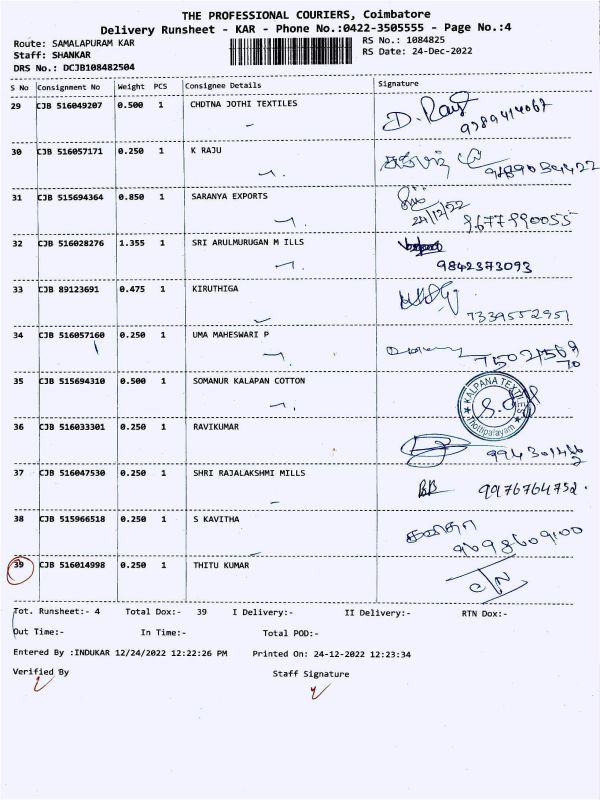 THE PROFESSIONAL COURIERS, Coimbatore
Delivery Runsheet - KAR - Phone No.:0422-3505555 - Page No.:4
Route: SAMALAPURAM KAR RS No.: 1084825
Staff: SHANKAR RS Date: 24-Dec-2022
DRS No.: DCJB108482504
S No Consignment No Weight PCS Consignee Details Signature
29 CJB 516049207 0.500 1 CHDTNA JOTHI TEXTILES
9389414067
30 CJB 516057171 0.250 1 K RAJU
31 CJB 515694364 0.850 1 SARANYA EXPORTS
24/12/22
9677990055
32 CJB 516028276 1.355 1 SRI ARULMURUGAN M ILLS
9842373093
33 CJB 89123691 0.475 1 KIRUTHIGA
7339552951
34 CJB 516057160 0.250 1 UMA MAHESWARI P
35 CJB 515694310 0.500 1 SOMANUR KALAPAN COTTON
KALPANA TEXTILES
Thottipalayam
36 CJB 516033301 0.250 1 RAVIKUMAR
37 CJB 516047530 0.250 1 SHRI RAJALAKSHMI MILLS
BB 9976764752.
38 CJB 515966518 0.250 1 S KAVITHA
கவிதா
9698609100
39 CJB 516014998 0.250 1 THITU KUMAR
Tot. Runsheet:- 4 Total Dox:- 39 I Delivery:- II Delivery:- RTN Dox:-
Out Time:- In Time:- Total POD:-
Entered By :INDUKAR 12/24/2022 12:22:26 PM Printed On: 24-12-2022 12:23:34
Verified By Staff Signature